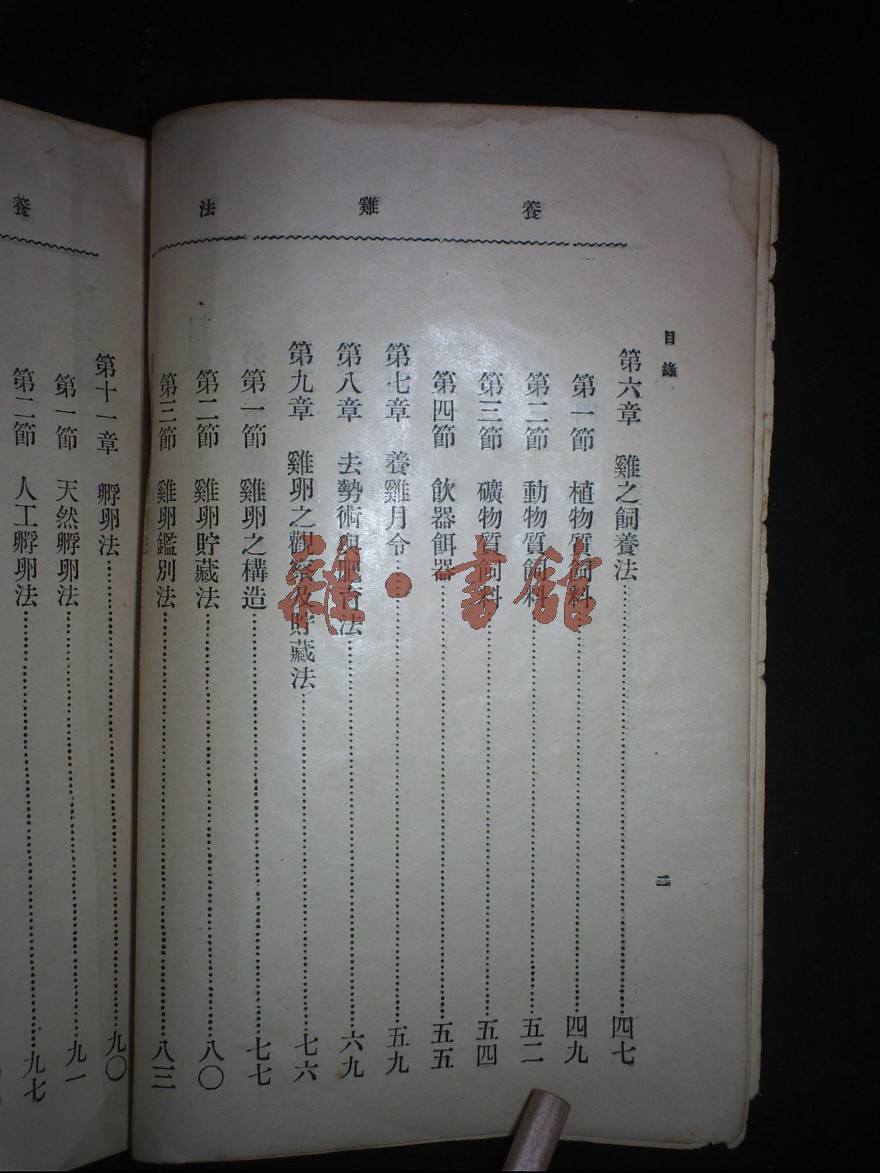 養雞法
目錄
二
第六章 雞之飼養法……四七
第一節 植物質飼料……四九
第二節 動物質飼料……五二
第三節 礦物質飼料……五四
第四節 飲器餌器……五五
第七章 養雞月令……五九
第八章 去勢術與肥育法……六九
第九章 雞卵之觀察及貯藏法……七六
第一節 雞卵之構造……七七
第二節 雞卵貯藏法……八〇
第三節 雞卵鑑別法……八三
養
第十一章 孵卵法……九〇
第一節 天然孵卵法……九一
第二節 人工孵卵法……九七
雜·書館